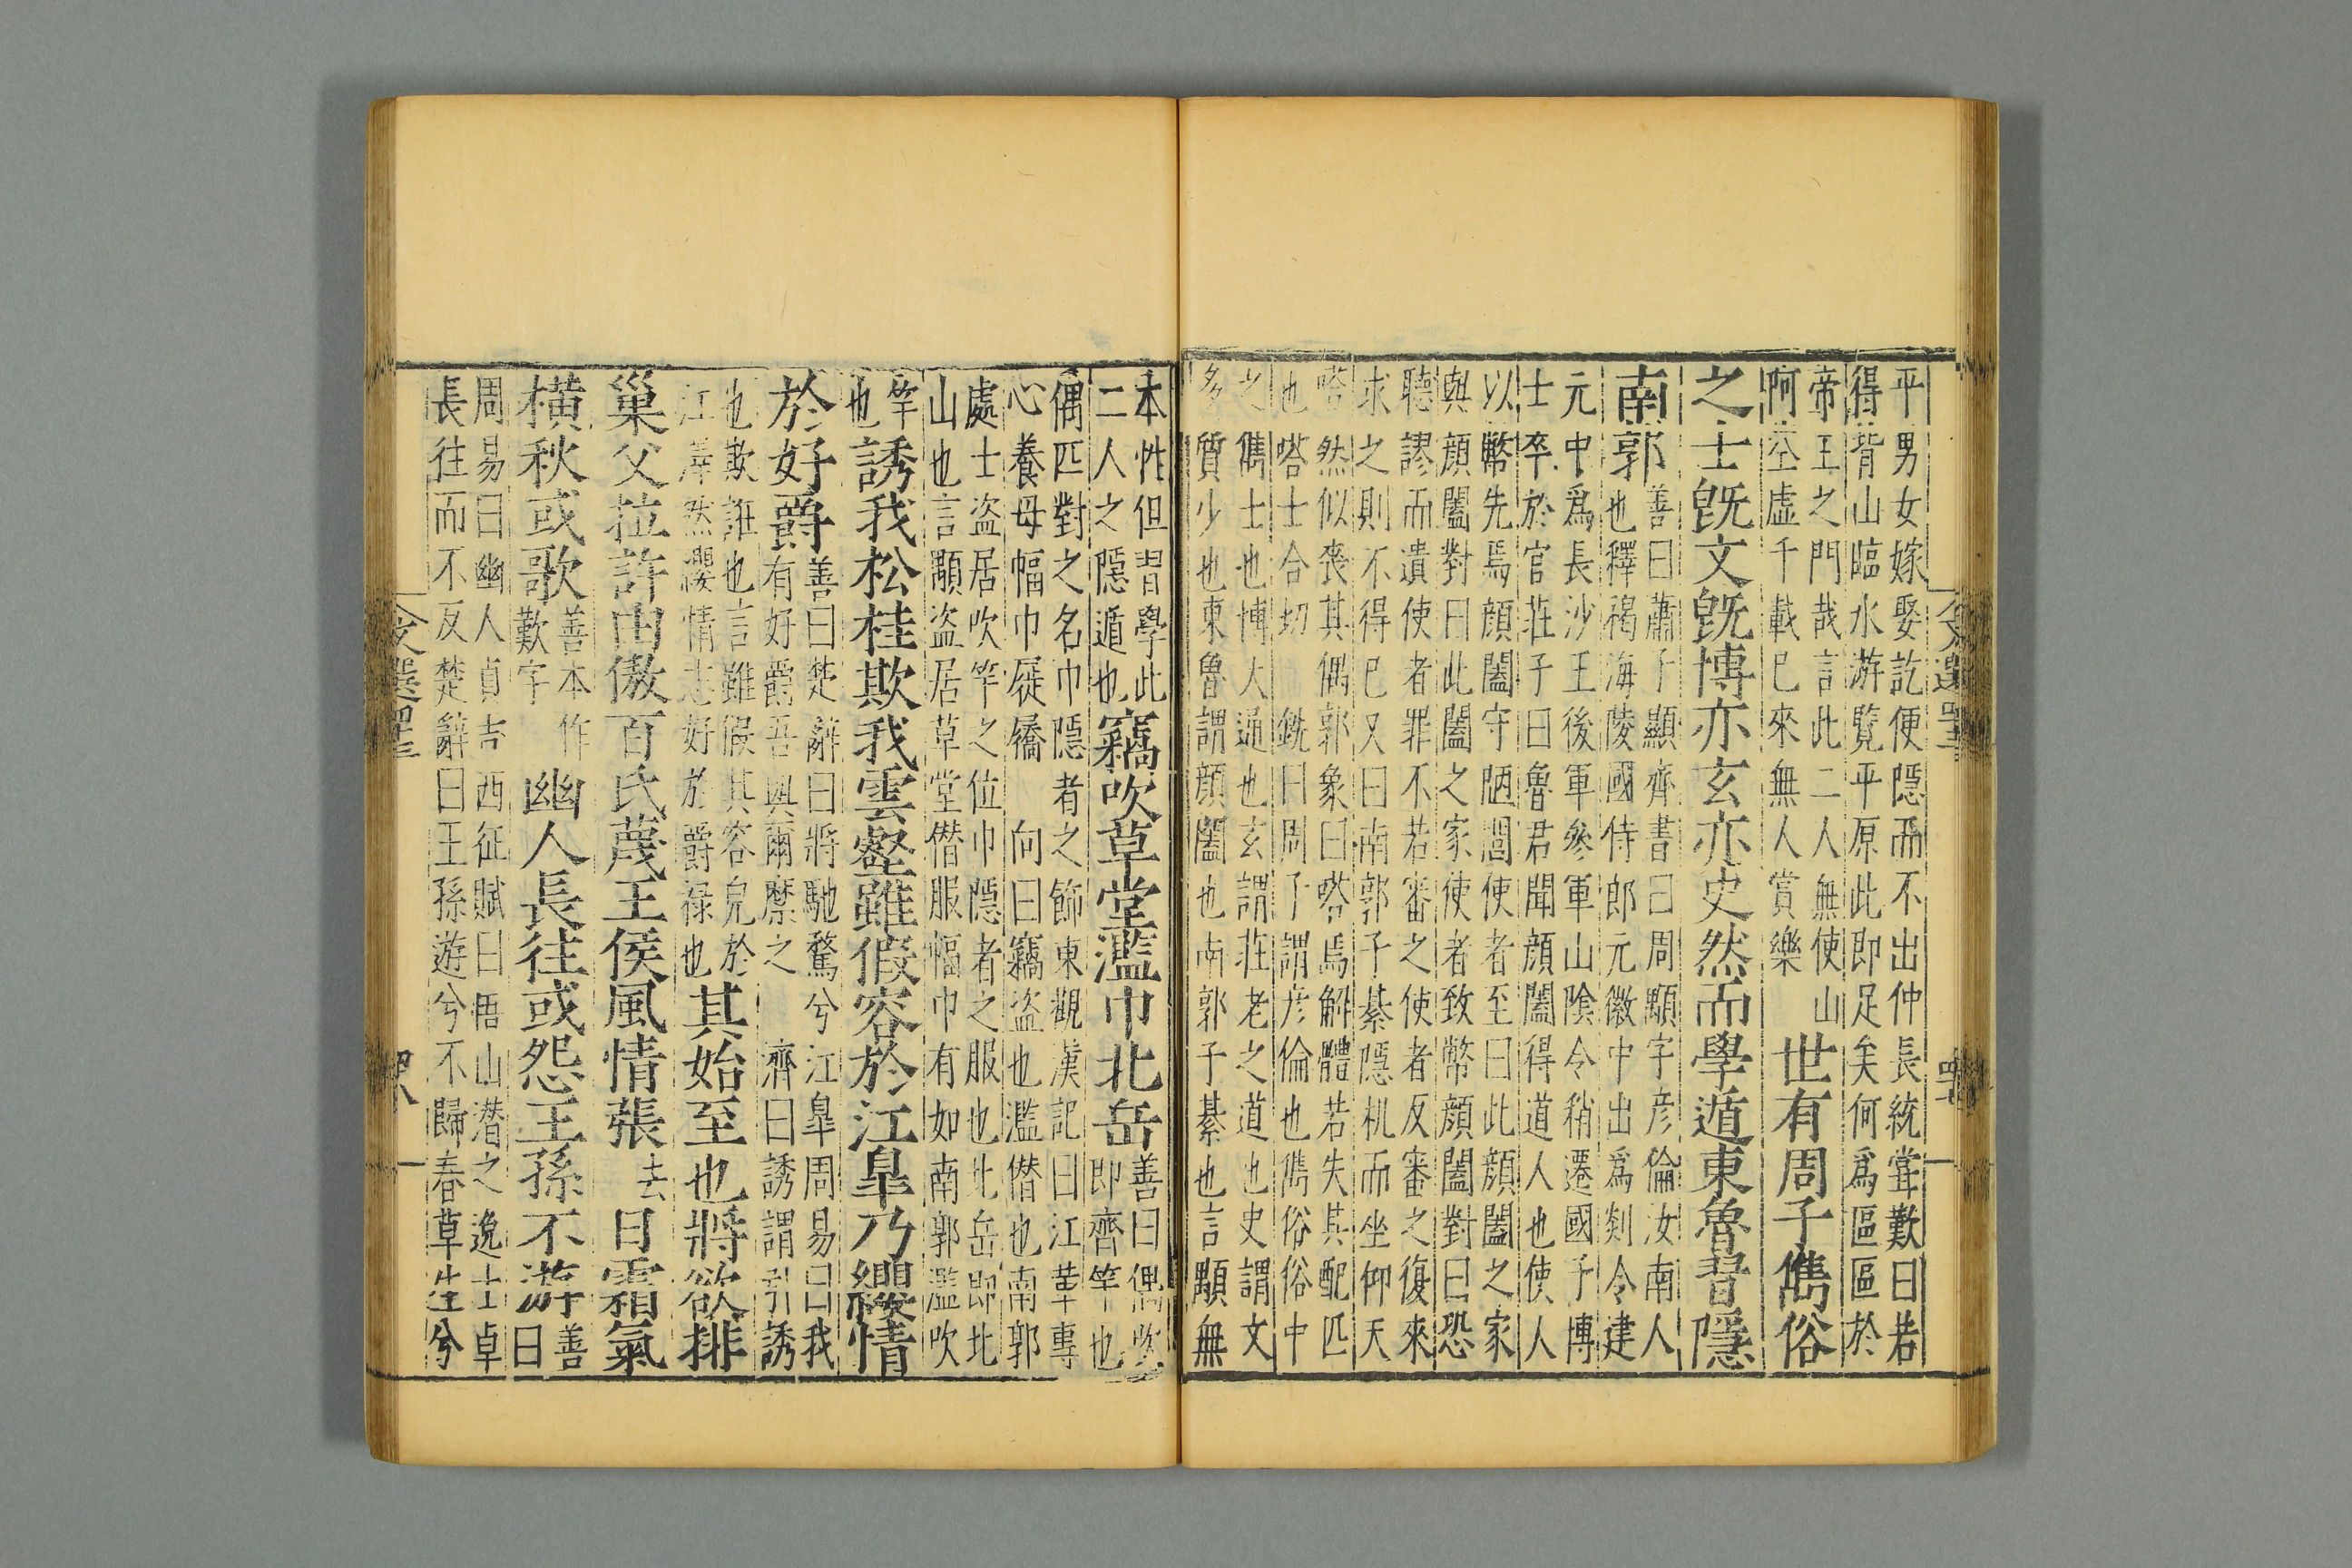 平男女嫁娶訖便隱而不出仲長統甞歎曰若
得背山臨水游覽平原此即足矣何爲區區於
帝王之門哉言此二人無使山
阿空虛千載已來無人賞樂
世有周子雋俗
之士旣文旣博亦玄亦史然而學遁東魯習隱
南郭
善曰蕭子顯齊書曰周顒字彦倫汝南人
也釋褐海陵國侍郎元徽中出爲剡令建
元中爲長沙王後軍參軍山隂令稍遷國子博
士卒於官莊子曰魯君聞顔闔得道人也使人
以幣先焉顔闔守陋閭使者至曰此顔闔之家
與顔闔對曰此闔之家使者致幣顔闔對曰恐
聽謬而遺使者罪不若審之使者反審之復來
求之則不得已又曰南郭子綦隱机而坐仰天
嗒然似喪其偶郭象曰嗒焉解體若失其配匹
也嗒士合切 銑曰周子謂彦倫也雋俗俗中
之雋士也博大通也玄謂莊老之道也史謂文
多質少也東魯謂顔闔也南郭子綦也言顒無
本性但習學此
二人之隱遁也
竊吹草堂濫巾北岳
善曰偶吹
即齊竽也
偶匹對之名巾隱者之飾東觀漢記曰江革專
心養母幅巾屣屩 向曰竊盜也濫僭也南郭
處士盜居吹竽之位巾隱者之服也北岳即北
山也言顒盜居草堂僭服幅巾有如南郭濫吹
竽
也
誘我松桂欺我雲壑雖假容於江皐乃纓情
於好爵
善曰楚辭曰將馳騖兮江皐周易曰我
有好爵吾與爾縻之 濟曰誘謂引誘
也欺誑也言雖假其容皃於
江澤然纓情志好於爵禄也
其始至也將欲排
巢父拉許由傲百氏蔑王侯風情張
去
日霜氣
橫秋或歌
善本作
歎字
幽人長往或怨王孫不游
善
曰
周易曰幽人貞吉西征賦曰悟山潜之逸士卓
長往而不反楚辭曰王孫遊兮不歸春草生兮